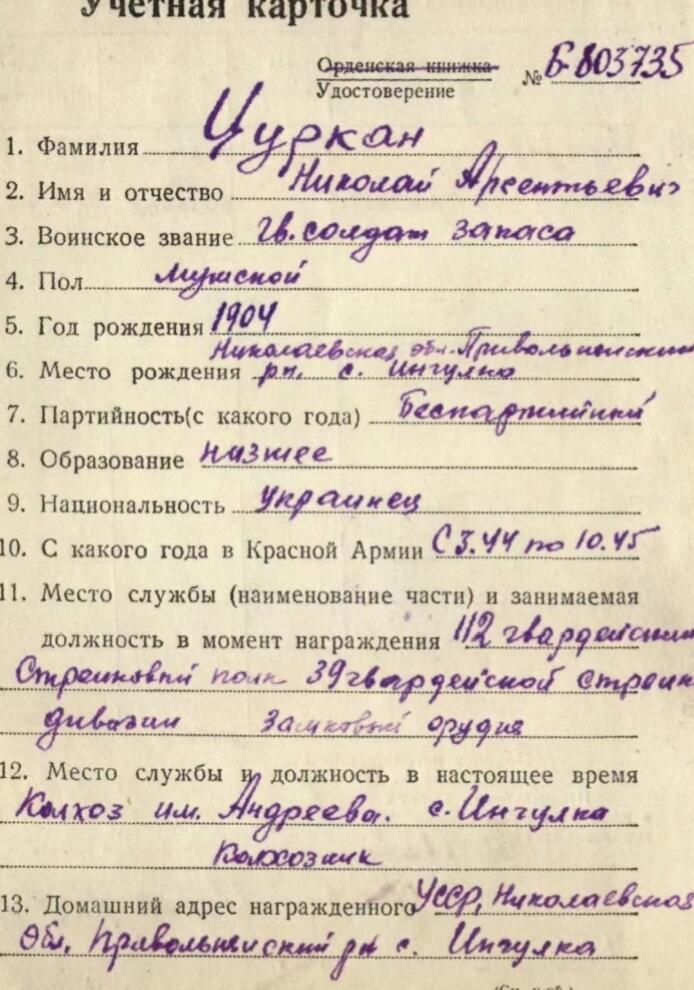 Учетная карточка
Орденская книжка
Удостоверение № Б-803735
1. Фамилия Цуркан
2. Имя и отчество Николай Арсентьевич
3. Воинское звание гв. солдат запаса
4. Пол мужской
5. Год рождения 1904
Николаевская обл. Привольнянский
6. Место рождения рн. с. Ингулка
7. Партийность(с какого года) Беспартийный
8. Образование низшее
9. Национальность украинец
10. С какого года в Красной Армии С 3.44 по 10.45
11. Место службы (наименование части) и занимаемая
должность в момент награждения 112 гвардейский
Стрелковый полк 39 гвардейской стрелк
дивизии замковый орудия
12. Место службы и должность в настоящее время
Колхоз им. Андреева. с. Ингулка
Колхозник
13. Домашний адрес награжденного УССР, Николаевская
Обл, Привольнянский рн с. Ингулка